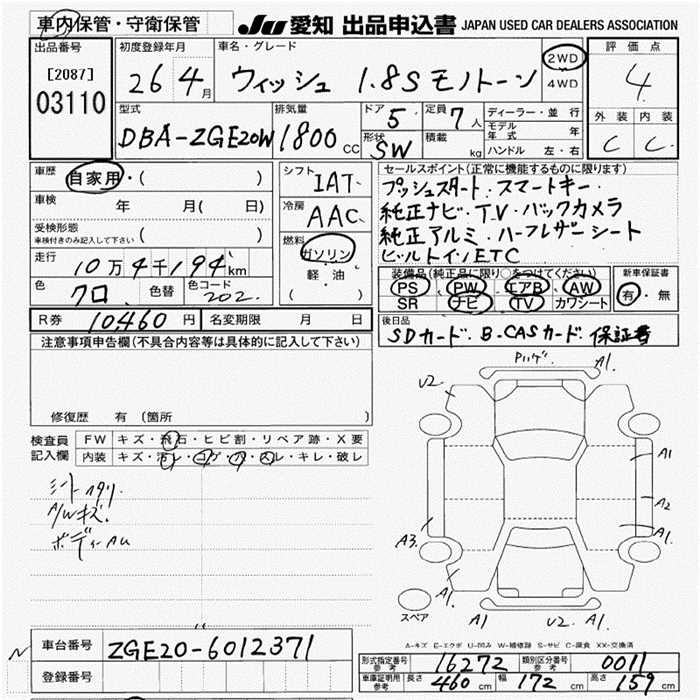 車内保管・守衛保管
JU 愛知 出品申込書 JAPAN USED CAR DEALERS ASSOCIATION
出品番号 初度登録年月 車名・グレード 評価点
[2087] 03110 26 4月 ウィッシュ 1.8S モノトーン 2WD 4WD 4
型式 排気量 ドア 5 定員 7人 ディーラー・並行 外装 内装
DBA-ZGE20W 1800cc 形状 SW 積載 kg モデル年式 年 C C
ハンドル 左・右
車歴 自家用・( ) シフト IAT
セールスポイント(正常に機能するものに限ります)
車検 年 月( 日) 冷房 AAC
プッシュスタート・スマートキー・
純正ナビ・TV・バックカメラ
受検形態 ( )
車検付きのみ記入して下さい
燃料 ガソリン・軽・油 ( )
純正アルミ・ハーフレザーシート
ビルトインETC
走行 10万4千194km
装備品(純正品に限り○をつけてください) 新車保証書
PS PW エアB AW 有・無
SR ナビ TV カワシート
色 クロ 色替 色コード 202
後日品
R券 10,460円 名変期限 月 日
SDカード・B-CASカード・保証書
注意事項申告欄(不具合内容等は具体的に記入して下さい)
修復歴 有 (箇所
検査員記入欄 FW キズ・飛石・ヒビ割・リペア跡・X要
内装 キズ・汚レ・コゲ・穴・スレ・キレ・破レ
A/Wキズ
ボディーAU
U2 A1.
A1
A2
A3. A1.
スペア A1 A1 U2 A1.
A-キズ E-エクボ U-凹み W-補修跡 S-サビ C-腐食 XX-交換済
車台番号 ZGE20-6012371
登録番号
型式指定番号 参考 16272 類別区分番号 参考 0011
車庫証明用 参考 長さ 460cm 幅 172cm 高さ 159cm